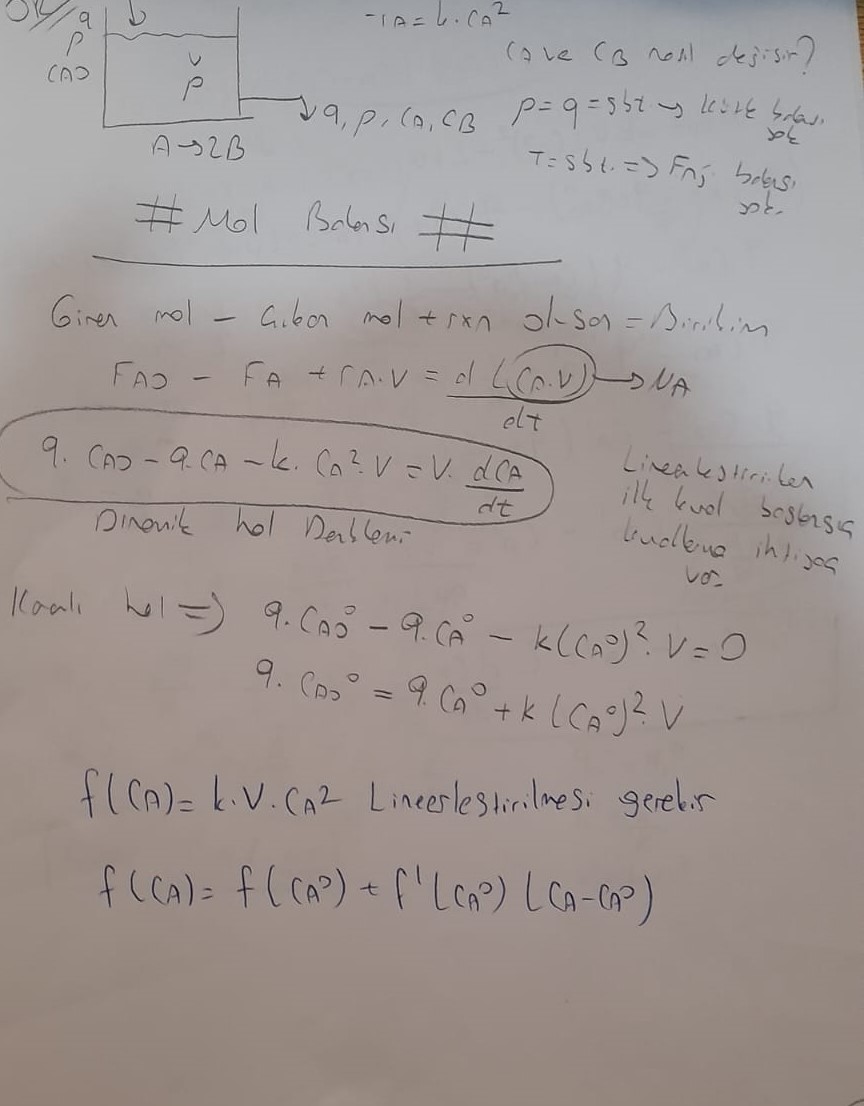 Ör// q
ρ
CAO
V
ρ
A→2B
q, ρ, CA, CB
-rA = k.CA²
CA ve CB nasıl değişir?
ρ = q = sbt → kütle balansı
yok
T = sbt. => Enj. balansı
yok.
# Mol Balansı #
Giren mol - Çıkan mol + rxn oluşan = Birikim
FAO - FA + rA.V = d(CA.V)/dt → NA
q. CAO - q.CA - k. CA².V = V. dCA/dt
Dinamik hal Denklemi
Lineerleştirilen
ilk kural
kurallara ihtiyaç
var
Kararlı hal => q.CAO° - q.CA° - k(CA°)².V = 0
q. CAO° = q.CA° + k(CA°)².V
f(CA) = k.V.CA² Lineerleştirilmesi gerekir
f(CA) = f(CA°) + f'(CA°) (CA-CA°)